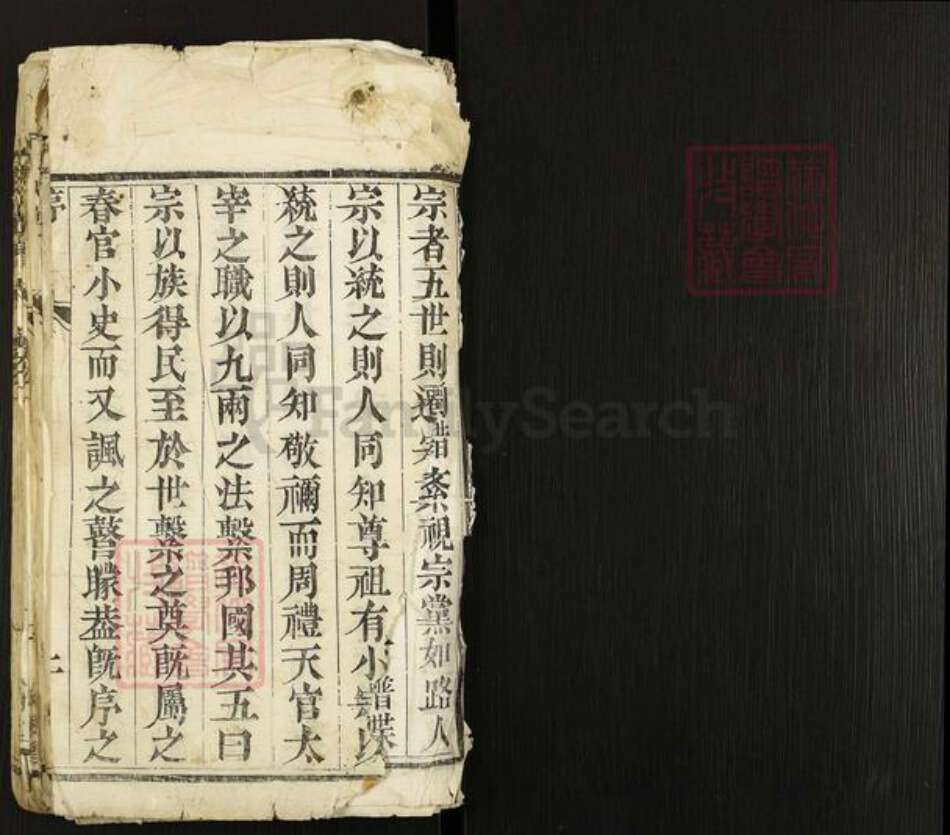 宗者五世則遷錯紊視宗黨如路人
宗以統之則人同知尊祖有小以
統之則人同知敬禰而周禮天官太
宰之職以九兩之法繫邦國其五曰
宗以族得民至於世繫之奠既屬之
春官小史而又諷之瞽矇葢既序之
序
二
譜牒
FamilySearch